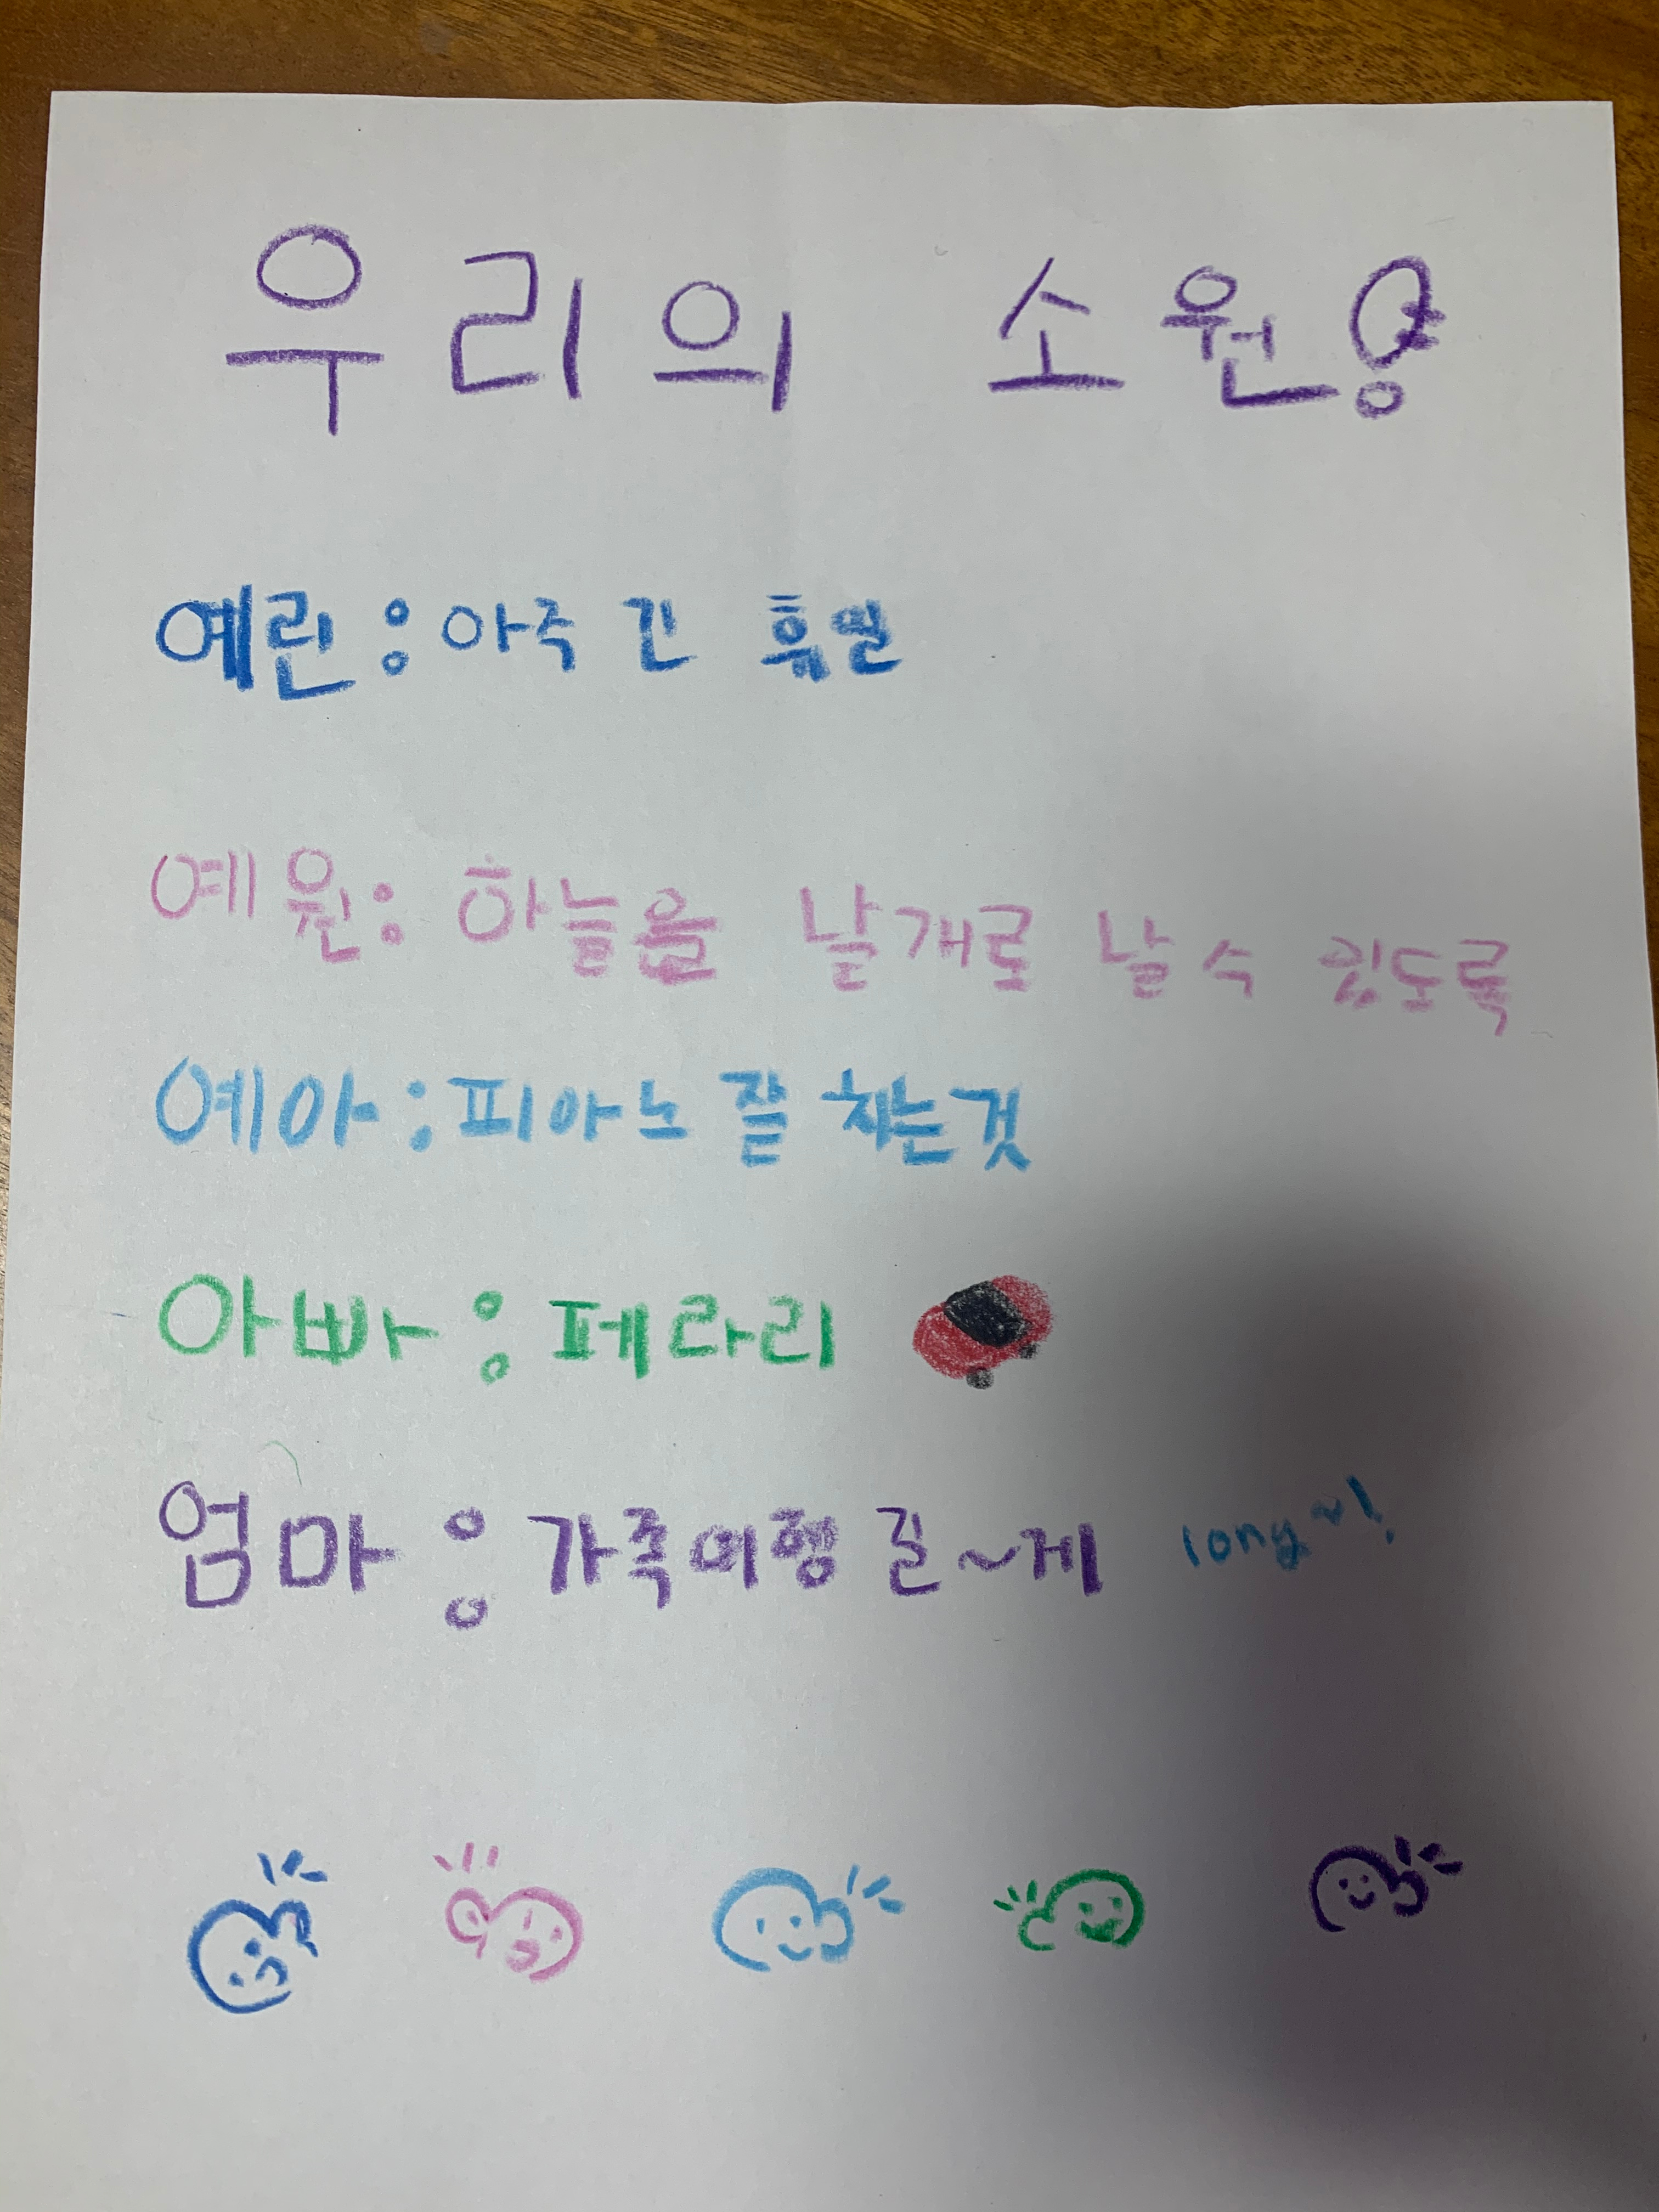 우리의 소원!
예린 : 아주 긴 휴일
예원 : 하늘을 날개로 날 수 있도록
예아 : 피아노 잘 치는것
아빠 : 페라리
엄마 : 가족여행 길~게 long~!